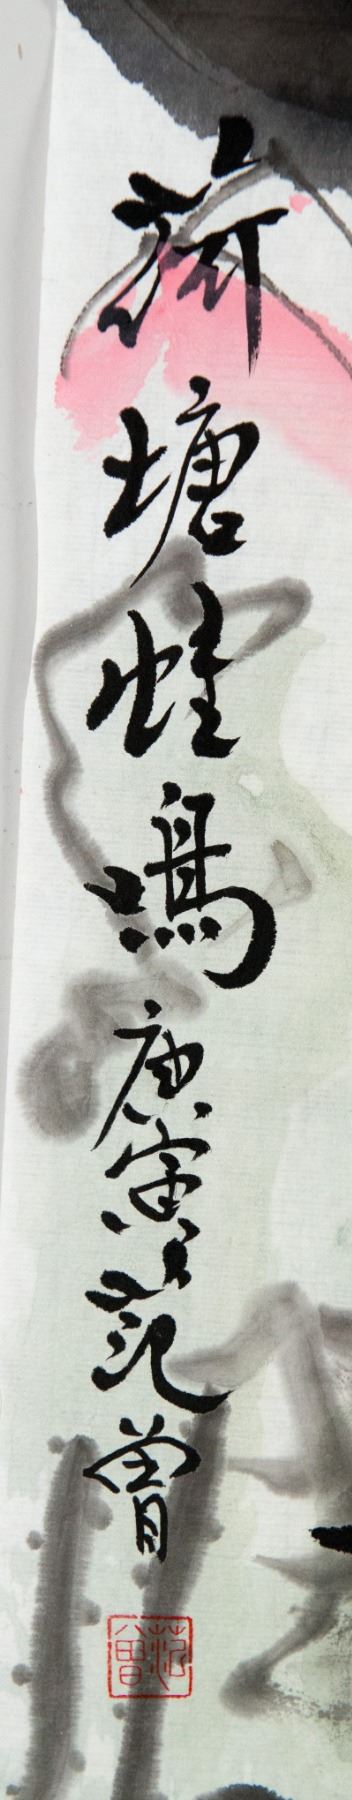 荷塘蛙鳴庚寅范曾
范曾